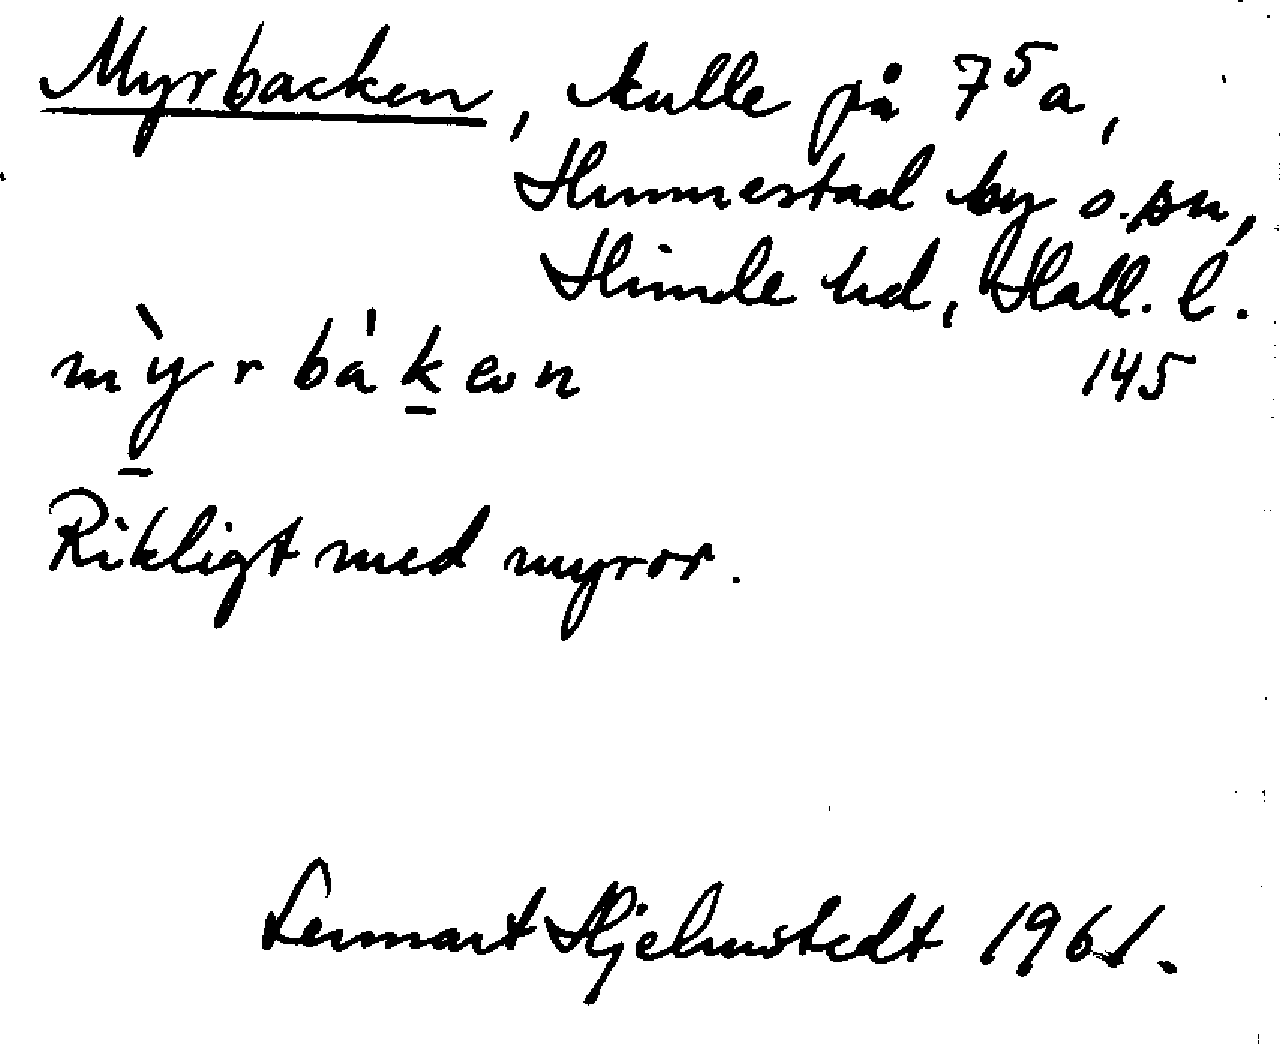 Myrbacken, kulle på 7⁵a,
Hunnestad by o. sn,
Himle hd, Hall. l.
145
mỳr bákən
Rikligt med myror.
Lennart Hjelmstedt 1961.